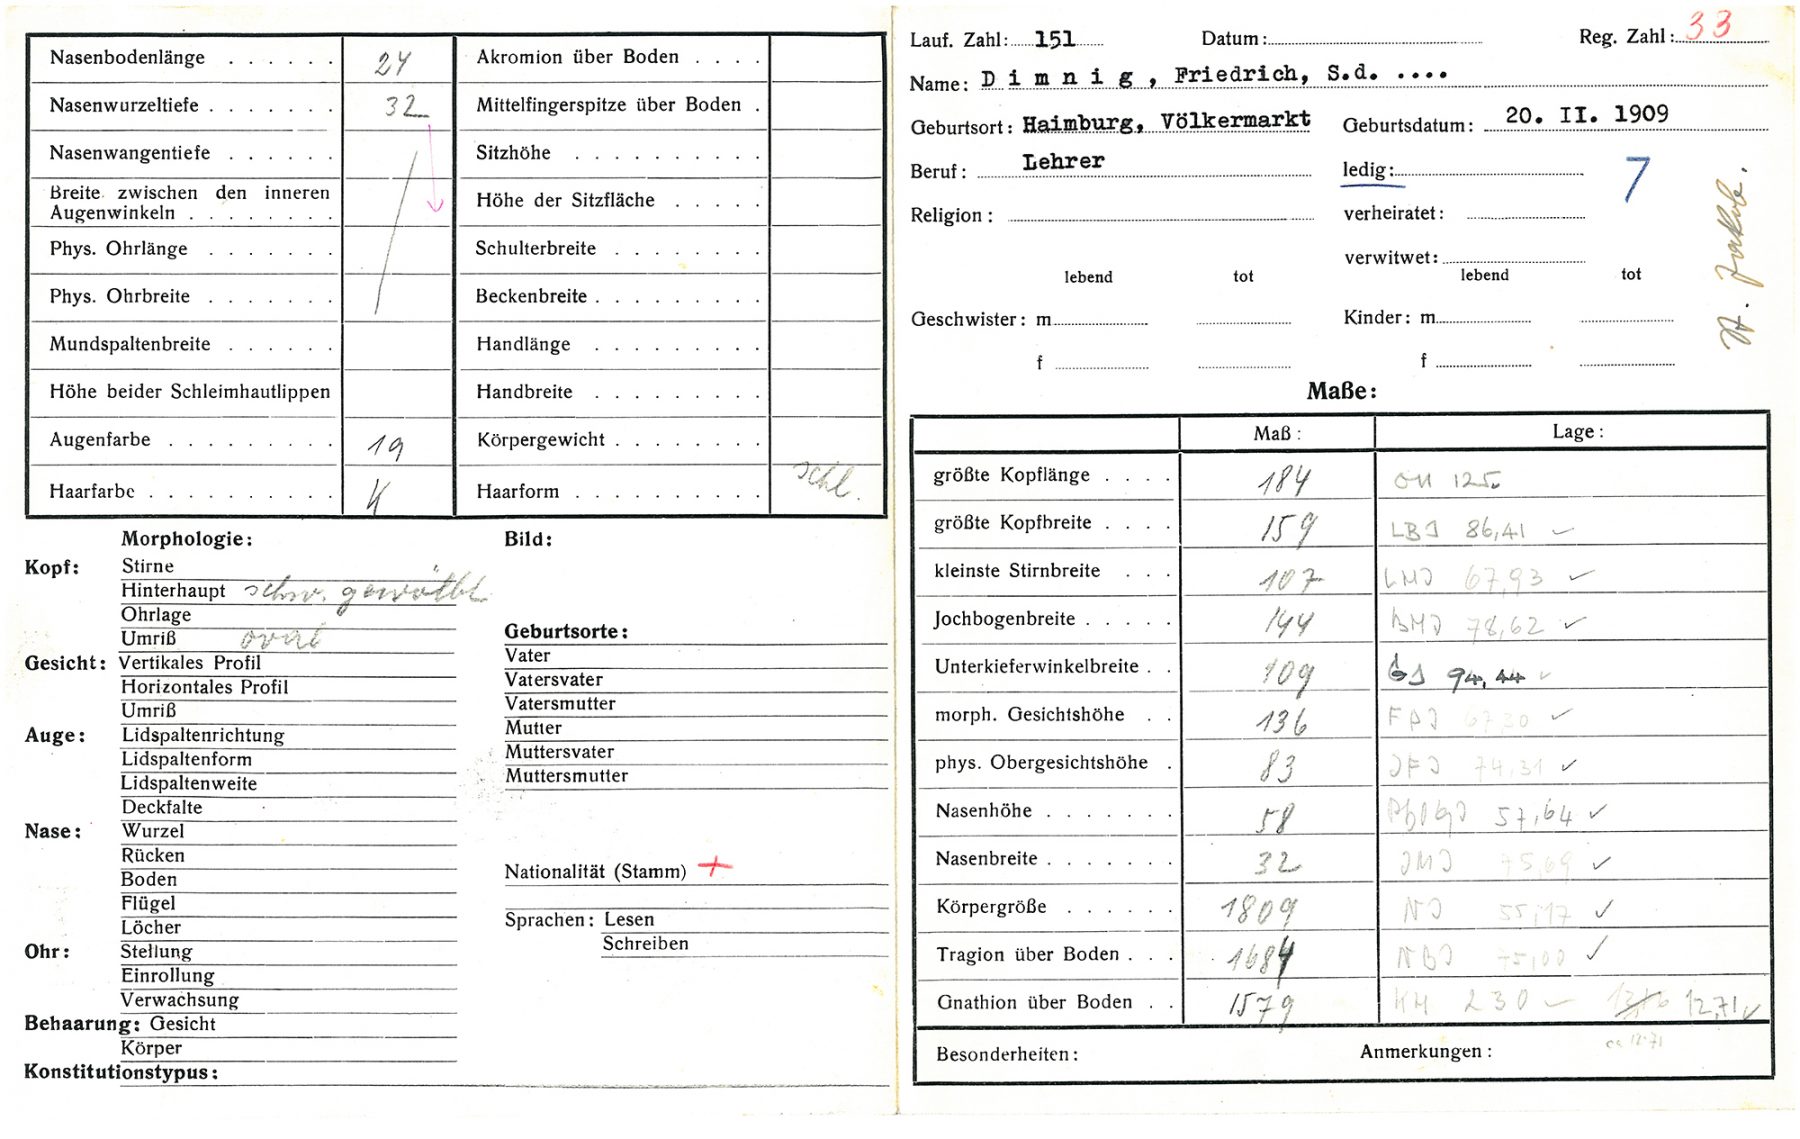 Nasenbodenlänge . . . . . . 24
Nasenwurzeltiefe . . . . . . . 32
Nasenwangentiefe . . . . . .
Breite zwischen den inneren
Augenwinkeln . . . . . . . .
Phys. Ohrlänge . . . . . . .
Phys. Ohrbreite . . . . . . .
Mundspaltenbreite . . . . . .
Höhe beider Schleimhautlippen
Augenfarbe . . . . . . . . . 19
Haarfarbe . . . . . . . . . .
Akromion über Boden . . . .
Mittelfingerspitze über Boden .
Sitzhöhe . . . . . . . . . .
Höhe der Sitzfläche . . . . .
Schulterbreite . . . . . . . .
Beckenbreite . . . . . . . . .
Handlänge . . . . . . . . .
Handbreite . . . . . . . . .
Körpergewicht . . . . . . . .
Haarform . . . . . . . . . . schl.
Morphologie:
Kopf: Stirne
Hinterhaupt schw. gewölbt
Ohrlage
Umriß oval
Gesicht: Vertikales Profil
Horizontales Profil
Umriß
Auge: Lidspaltenrichtung
Lidspaltenform
Lidspaltenweite
Deckfalte
Nase: Wurzel
Rücken
Boden
Flügel
Löcher
Ohr: Stellung
Einrollung
Verwachsung
Behaarung: Gesicht
Körper
Konstitutionstypus:
Bild:
Geburtsorte:
Vater
Vatersvater
Vatersmutter
Mutter
Muttersvater
Muttersmutter
Nationalität (Stamm) +
Sprachen: Lesen
Schreiben
Lauf. Zahl: 151 Datum: Reg. Zahl: 33
Name: Dimnig, Friedrich, S.d. ....
Geburtsort: Haimburg, Völkermarkt Geburtsdatum: 20. II. 1909
Beruf: Lehrer ledig: 7
Religion: verheiratet:
verwitwet:
St. Jakob.
lebend tot lebend tot
Geschwister: m Kinder: m
f f
Maße:
Maß: Lage:
größte Kopflänge . . . . 184 OH 125
größte Kopfbreite . . . . 159 LBJ 86,41 ✓
kleinste Stirnbreite . . . 107 LHJ 67,93 ✓
Jochbogenbreite . . . . . 144 BHJ 78,62 ✓
Unterkieferwinkelbreite . . 109 GJ 94,44 ✓
morph. Gesichtshöhe . . 136 FPJ 67,30 ✓
phys. Obergesichtshöhe . 83 JFJ 74,31 ✓
Nasenhöhe . . . . . . . 58 57,64 ✓
Nasenbreite . . . . . . 32 JMJ 75,69 ✓
Körpergröße . . . . . . 1809 NJ 55,17 ✓
Tragion über Boden . . . 1684 NBJ 75,00 ✓
Gnathion über Boden . . 1579 KH 230 ✓ 12,71 ✓
Besonderheiten: Anmerkungen: